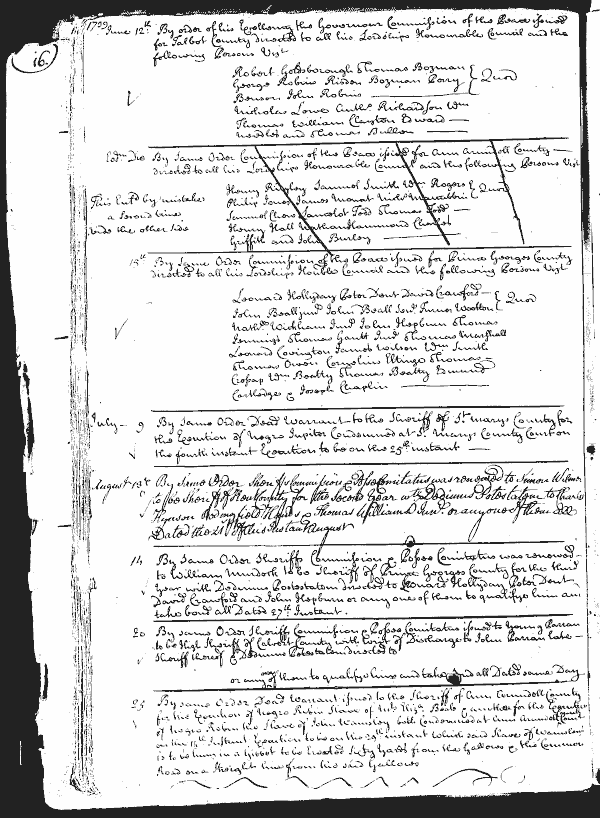 16.
1739
June 12th By order of his Excellency the Governour Commission of the Peace issued
for Talbot County directed to all his Lordships Honourable Council and the
following Persons Vizt
Robert Goldsborough Thomas Bozman
George Robins Risdon Bozman Perry
Benson John Robins
Quor
Nicholas Lowe Richardson Wm
Thomas William Clayton Edward
Needles and Thomas Bullen
Do By Same Order Commission of the Peace issued for Ann Arundell County
directed to all his Lordships Honourable Council and the following Persons Vizt
This Entd by mistake
a Second time
vide the other Side
Henry Ridgley Samuel Smith Wm Rogers
Philip Jones James Monat Nichs Maccubbin
Quor
Samuel Chew Lancelot Todd Thomas Todd
Henry Hall Nathan Hammond Charles
Griffith and John Burley
15th By Same Order Commission of the Peace issued for Prince Georges County
directed to all his Lordships Honble Council and the following Persons Vizt
Leonard Hollyday Peter Dent David Crawford
John Beall junr John Beall Senr Turner Wootton
Quor
Nathll Wickham Junr John Hepburn Thomas
Jennings Thomas Gantt Junr Thomas Marshall
Leonard Covington James Wilson Wm Smith
Thomas Owen Cornelius Eltinge Thomas
Cresap Wm Beatty Thomas Beatty Edmund
Cartledge & Joseph Chaplin
July 9 By Same Order Dead Warrant to the Sheriff of St marys County for
the Execution of Negro Jupiter Condemned at St Marys County Court on
the fourth instant Execution to be on the 25th instant
August 13th By Same Order Sheriffs Commission & Posse Comitatus was renewed to Simon Wilmer
to be Sheriff of Kent County for the Second Year with Dedimus Potestatem to Charles
Hynson Hands & Thomas Williams Junr. or any one of them all
Dated the 21st of this Instant August
14 By Same Order Sheriffs Commission & Posse Comitatus was renewed
to William Murdock to be Sheriff of Prince Georges County for the third
Year with Dedimus Potestatem directed to Leonard Hollyday Peter Dent
David Crawford and John Hepburn or any one of them to qualifye him and
take bond all Dated 27th Instant.
20 By Same Order Sheriff Commission & Posse Comitatus issued to Young Parran
to be High Sheriff of Calvert County with Writ of Discharge to John Parran late
Sheriff thereof & Dedimus Potestatem directed to
or any of them to qualifye him and take Bond all Dated Same Day
25 By Same Order Dead Warrant issued to the Sheriff of Ann Arundell County
for the Execution of Negro Robin Slave of & another for the Execution
of Negro Robin the Slave of John Wamsley both Condemned at Ann Arundell Court
on the 15th Instant Execution to be on the 29th instant which said Slave of Wamsleys
is to be hung in a Gibbet to be Erected Sixty Yards from the Gallows & the Common
Road on a Streight line from his said Gallows